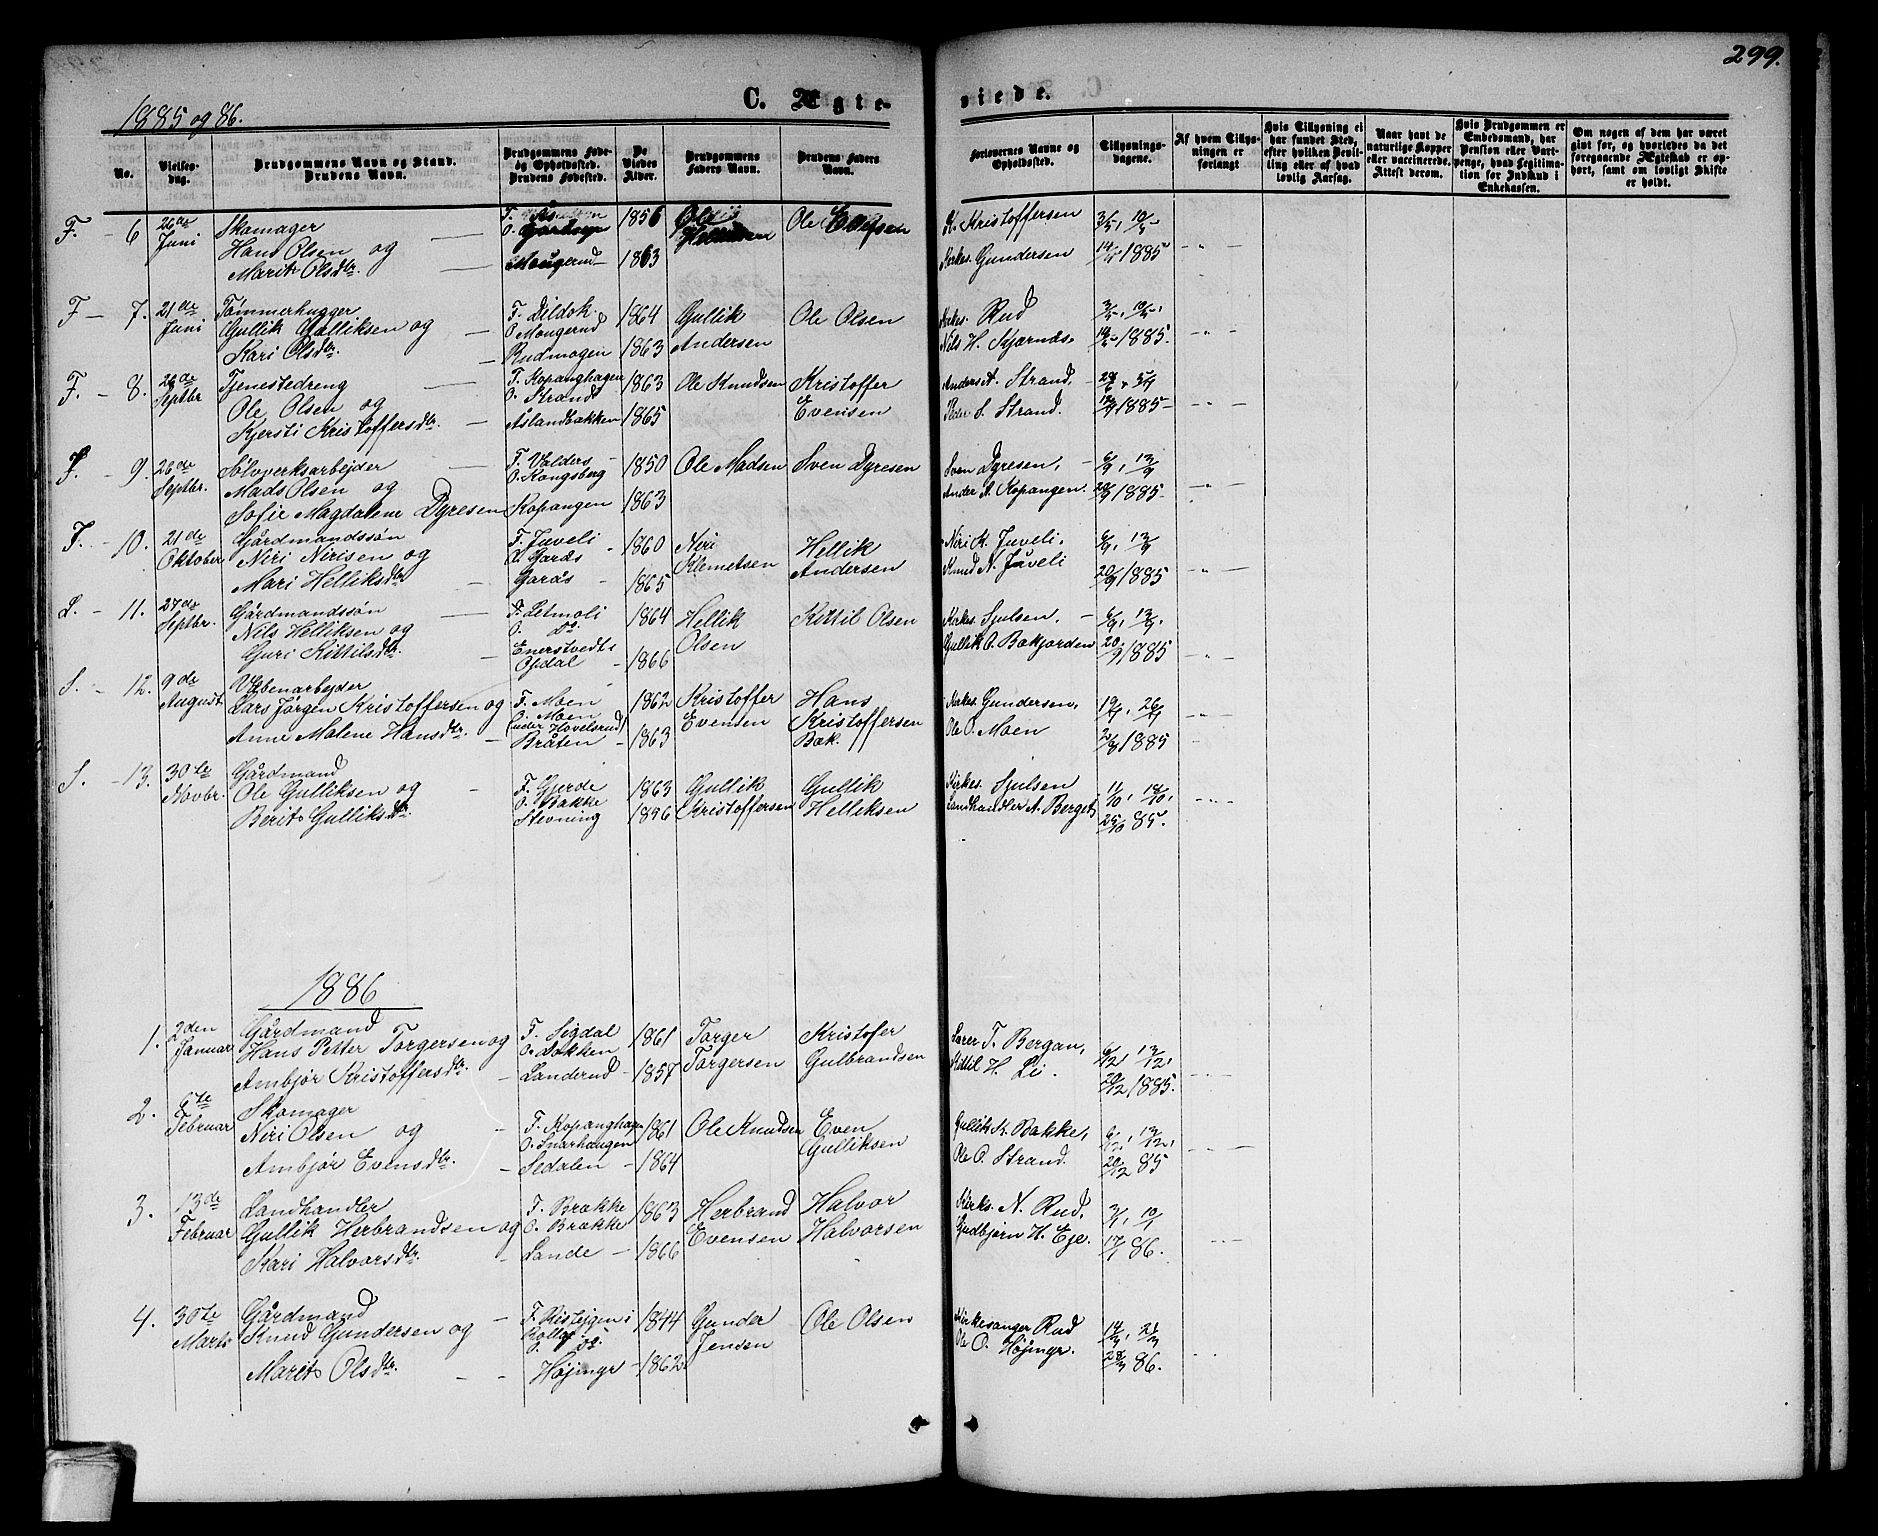 299.
1885 og 86.
C. Ægte-
viede.
No.
Vielses-
dag.
Brudgommens Navn og Stand.
Brudens Navn.
Brudgommens Føde-
og Opholdssted.
Brudens Fødested.
De
Viedes
Alder.
Brudgommens
Faders Navn.
Brudens Faders
Navn.
Forlovernes Navne og
Opholdssted.
Tillysnings-
dagene.
Af hvem Tillys-
ningen er
forlangt
Hvis Tillysning ei
har fundet Sted,
efter hvilken Bevil-
ling eller af hvad
lovlig Aarsag.
Naar havt de
naturlige Kopper
eller vaccinerede.
Attest derom.
Hvis Brudgommen er
Embedsmand, har
Pension eller Vart-
penge, hvad Legitima-
tion for Indskud i
Enkekassen.
Om nogen af dem har været
gift før, og hvorledes da det
foregaaende Ægteskab er op-
hørt, samt om lovligt Skifte
er holdt.
F. - 6
26de
Juni
Skomager
Hans Olsen og
Marit Olsdtr.
Mougerud
1856
1863
Ole
K. Kristoffersen
Kirkes. Gundersen
3/5, 10/5
14/5 1885
F - 7.
21de
Juni
Tømmerhugger
Gullik Gulliksen og
Kari Olsdtr.
F. Dildok
O. Mougerud
Rudmogen
1864
1863
Gullik
Andersen
Ole Olsen
Kirkes. Rud
Nils H. Kjørnås.
3/5, 10/5,
14/5 1885.
F. - 8.
26de
Septbr
Tjenestedreng
Ole Olsen og
Kjersti Kristoffersdtr.
F. Kopanghagen
O. Strand
Åslandbakken
1863
1865
Ole Knudsen
Kristoffer
Evensen
Anders A. Strand,
Peder S. Strand.
1885
F. - 9.
26de
Septbr.
Sølvverksarbejder
Mads Olsen og
Sofie Magdalene Dyresen
F. Valders
O. Kongsberg
Kopangen
1850
1863
Ole Madsen
Sven Dyresen
Sven Dyresen,
Ander A. Kopangen.
6/9, 13/9
20/9 1885
F. - 10.
21de
Oktober
Gårdmandssøn
Niri Nirisen og
Mari Helliksdtr
F. Juveli
O. Garås
Garås
1860
1865
Niri
Klemetsen
Hellik
Andersen
Niri K. Juveli,
Knud N. Juveli
6/9, 13/9
20/9 1885
L. - 11.
27de
Septbr.
Gårdmandssøn
Nils Helliksen og
Guri Kittilsdtr.
F. Letmoli
O. Do
Enerstvedt i
Opdal
1864
1866
Hellik
Olsen
Kittil Olsen
Kirkes. Sjulsen,
Gullik O. Bakjorden
6/9, 13/9,
20/9 1885
S. - 12.
9de
August
Våbenarbejder
Lars Jørgen Kristoffersen og
Anne Malene Hansdtr.
F. Moen
O. Moen
(under Hovelsrud)
Bråten
1862
1863
Kristoffer
Evensen
Hans
Kristoffersen
Bak.
Kirkes. Gundersen,
Ole O. Moen
19/7, 26/7
2/8 1885
S. - 13.
30te
Novbr.
Gårdmand
Ole Gulliksen og
Berit Gulliksdtr.
F. Gjerde
O. Bakke
Stevning
1863
Gullik
Kristoffersen
Gullik
Helliksen
Kirkes. Sjulsen
Landhandler A. Berget
11/10, 18/10,
25/10 85.
1886
1.
2den
Januar
Gårdmand
Hans Petter Torgersen og
Ambjør Kristoffersdtr.
F. Sigdal
O. Bakken
Landerud
1861
1857
Torger
Torgersen
Kristofer
Gulbrandsen
Lærer T. Bergan,
Kittil H. Li.
6/12, 13/12,
20/12 1885.
2.
6te
Februar
Skomager
Niri Olsen og
Ambjør Evensdtr.
F. Kopanghagen
O. Snarhaugen
Sedalen
1861
1864
Ole Knudsen
Even
Gulliksen
Gullik K. Bakke,
Ole O. Strand.
6/12, 13/12,
20/12 85
3.
13de
Februar
Landhandler
Gullik Herbrandsen og
Kari Halvorsdtr.
F. Brække
O. Brække
Lande
1863
1866
Herbrand
Evensen
Halvor
Halvorsen
Kirks. N. Rud,
Gudbjørn H. Eje.
3/1, 10/1
17/1 86.
4.
30te
Marts
Gårdmand
Knud Gundersen og
Marit Olsdtr.
Højinge
1844
1862
Gunder
Jensen
Ole Olsen
Kirkesanger Rud
Ole O. Højinge.
14/3, 21/3
28/3 86.